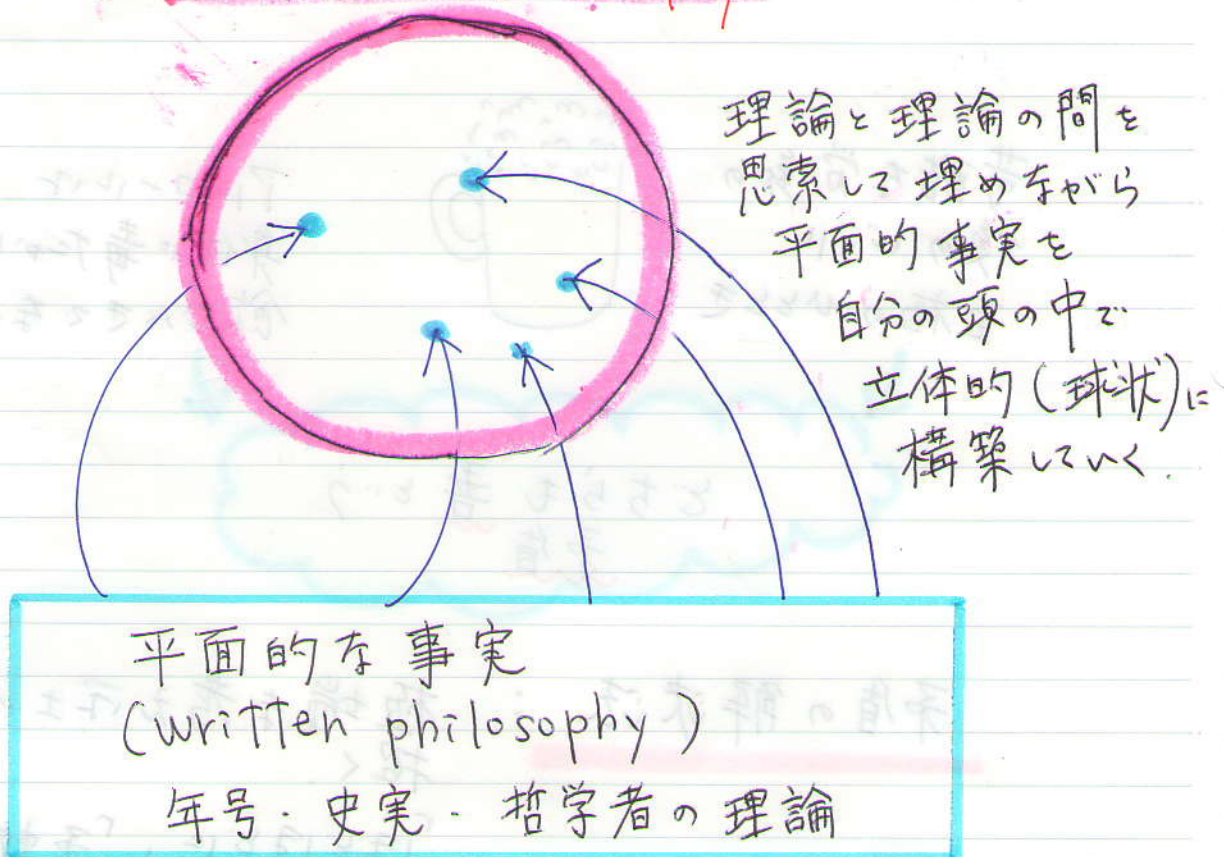 理論と理論の間を
思索して埋めながら
平面的事実を
自分の頭の中で
立体的(球状)に
構築していく.
平面的な事実
(written philosophy)
年号・史実・哲学者の理論